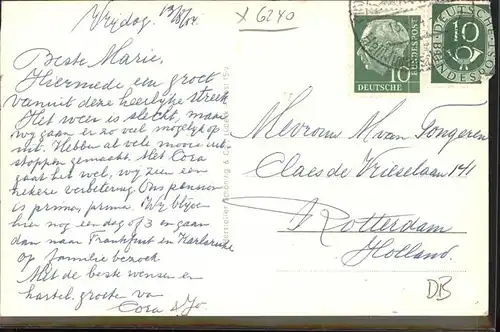 Vrijdag. 13/8/54.
X 6240
Beste Marie,
Hiermede een groet
vanuit deze heerlijke streek
Het weer is slecht, maar
wij gaan er zo veel mogelijk op
uit. Hebben al vele mooie uit-
stappen gemaakt. Met Cora
gaat het wel, wij zien een
zekere verbetering. Ons pension
is prima, prima. Wij blijven
hier nog een dag of 3 en gaan
dan naar Frankfurt en Karlsruhe
op familie bezoek.
Met de beste wensen en
hartel. groeten van
Cora & Jo.
10
DEUTSCHE
BUNDESPOST
DEUTSCHE
10
BUNDESPOST
Mevrouw M van Tongeren
Claes de Vrieselaan 141
Rotterdam
Holland.
DB